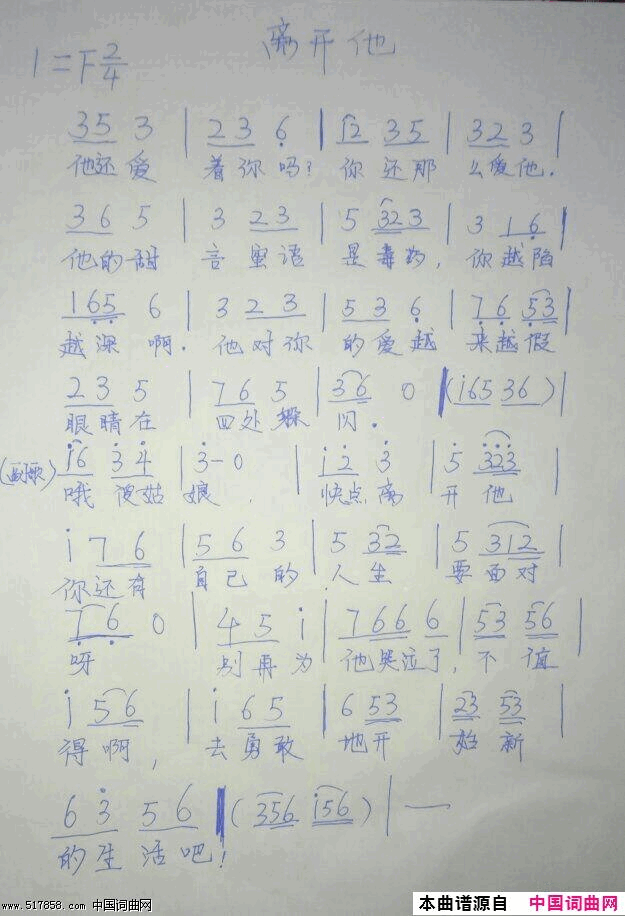 离开他
1=F 2/4
35 3 | 23 6 | 12 35 | 32 3 |
他还爱 着你吗? 你还那 么爱他.
36 5 | 3 23 | 5 323 | 3 16 |
他的甜 言蜜语 是毒药, 你越陷
165 6 | 3 23 | 53 6 | 76 53 |
越深啊. 他对你 的爱越 来越假
23 5 | 76 5 | 36 0 | (i65 36) |
眼睛在 四处躲 闪.
(副歌) i6 34 | 3-0 | i2 3 | 5 323 |
哦傻姑 娘, 快点离 开他
i 76 | 56 3 | 5 32 | 5 312 |
你还有 自己的 人生 要面对
76 0 | 45 i | 766 6 | 53 56 |
呀 别再为 他哭泣了, 不值
i 56 | i 65 | 6 53 | 23 53 |
得啊, 去勇敢 地开 始新
63 56 | (356 i56) | —
的生活吧!
www.517858.com 中国词曲网
本曲谱源自 中国词曲网